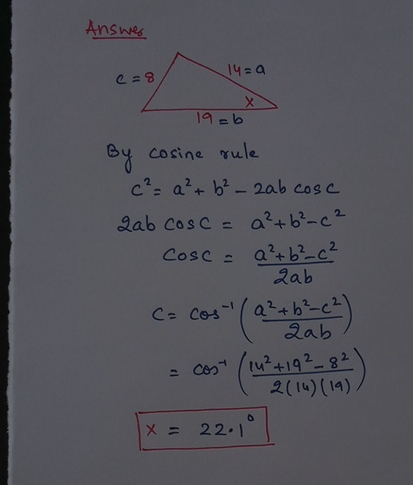 Answer
c = 8
14 = a
x
19 = b
By cosine rule
c² = a² + b² - 2ab cosc
2ab cosc = a² + b² - c²
cosc = a² + b² - c² / 2ab
c = cos⁻¹ (a² + b² - c² / 2ab)
= cos⁻¹ (14² + 19² - 8² / 2(14)(19))
x = 22.1°